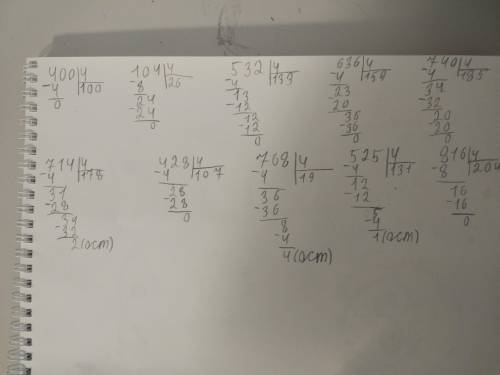 400|4 104|4 532|4 636|4 740|4
-4 |100 -8 |26 -4 |133 -4 |159 -4 |185
0 24 13 23 34
-24 -12 20 -32
0 12 36 20
-12 -36 -20
0 0 0
714|4 428|4 768|4 525|4 816|4
-4 |178 -4 |107 -4 |19 -4 |131 -8 |204
31 28 36 12 16
-28 -28 -36 -12 -16
34 0 8 5 0
-32 -4 -4
2(ост) 4(ост) 1(ост)